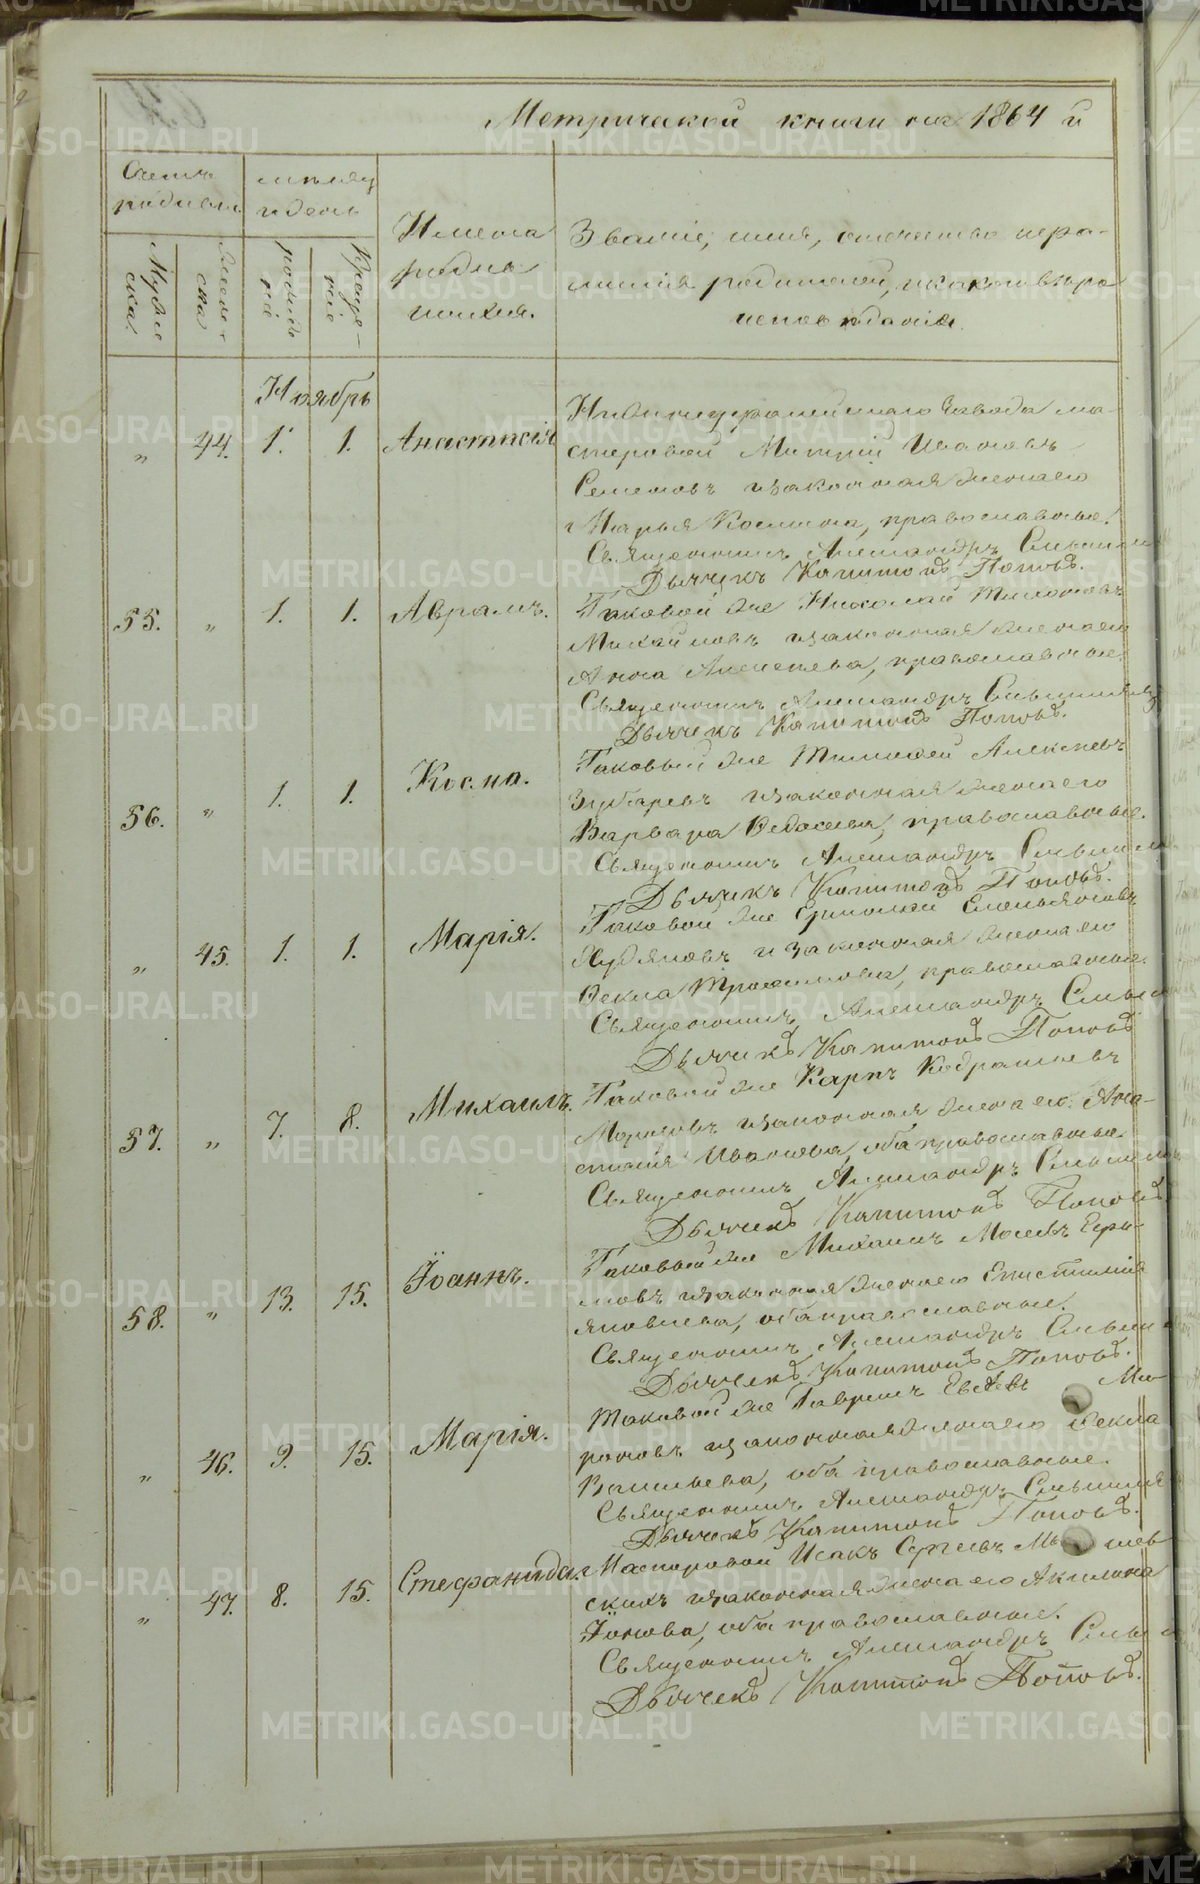 Метрической книги на 1864 й
Счетъ родивш.
мѣсяц и день
Имена родив шихся.
Званіе, имя, отчество и фа-
милія родителей, и какого вѣро
исповѣданія.
Муже ска.
Женс ска
рожде ніе
Креще- ніе
Ноябрь
" 44. 1. 1. Анастасія
завода ма-
стеровой Митрій Ивановъ
Семеновъ изаконная жена его
Марья Космина, православные.
Священникъ Александръ
Дьячекъ Капитонъ Поповъ.
55. " 1. 1. Аврамъ.
Таковой же Николай
Михайловъ изаконная жена его
Анна Алексеева, православные.
Священникъ Александръ
Дьячекъ Капитонъ Поповъ.
56. " 1. 1. Косма.
Таковый же Тимофей Алексѣевъ
Зубаревъ изаконная жена его
Варвара Ѳедосеева, православные.
Священникъ Александръ
Дьячекъ Капитонъ Поповъ.
" 45. 1. 1. Марія.
Таковой же Ермолай Емельяновъ
Худяковъ и законная жена его
Ѳекла Трофимова, православные.
Священникъ Александръ
Дьячекъ Капитонъ Поповъ
57. " 7. 8. Михаилъ.
Таковой же Карпъ
Морозовъ изаконная жена его Ана-
стасія Иванова, оба православные
Священникъ Александръ
Дьячекъ Капитонъ Поповъ
58. " 13. 15. Іоаннъ.
Таковый же Михаилъ
изаконная жена его Епистимія
Яковлева, оба православные.
Священникъ Александръ
Дьячекъ Капитонъ Поповъ.
" 46. 9. 15. Марія.
Таковой же Гаврилъ Ми-
роновъ изаконная жена его Ѳекла
Васильева, оба православные.
Священникъ Александръ
Дьячекъ Капитонъ Поповъ.
" 47. 8. 15. Стефанида.
Мастеровой Исакъ Сергеевъ
скихъ изаконная жена его Акилина
Іонова, оба православные.
Священникъ Александръ
Дьячекъ Капитонъ Поповъ.
METRIKI.GASO-URAL.RU